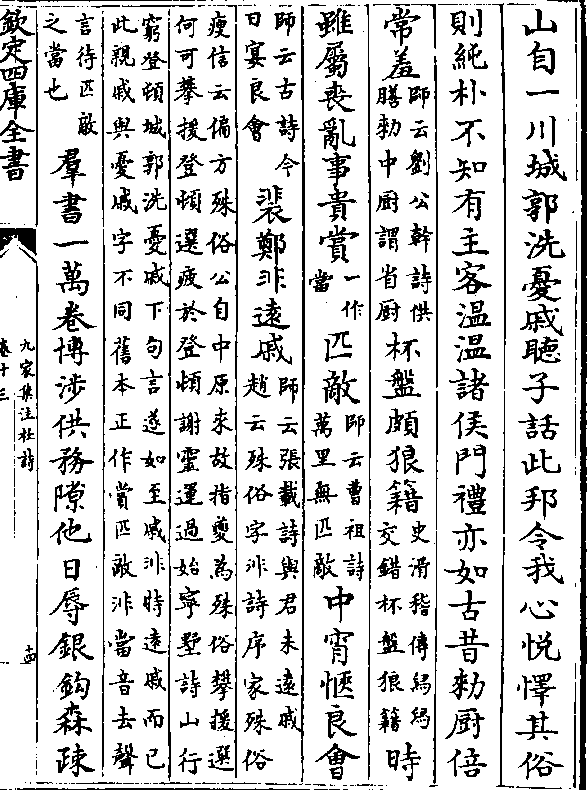 山自一川城郭洗憂戚聽子話此邦令我心悅懌其俗
則純朴不知有主客溫溫諸侯門禮亦如古昔勑厨倍
常羞師云劉公幹詩供膳勑中厨謂省厨杯盤頗狼籍史滑稽傳舄舄交錯杯盤狼籍時
雖屬喪亂事貴賞一作當匹敵師云曹祖詩萬里無匹敵中宵愜良會
師云古詩今日宴良會裴鄭非遠戚師云張載詩與君未遠戚趙云殊俗字非詩序家殊俗
瘦信云偏方殊俗公自中原來故指夔為殊俗攀援選
何可攀援登頓選疲於登頓謝靈運過始寧墅詩山行
窮登頓城郭洗憂戚下句言遂如至戚非時遠戚而已
此親戚與憂戚字不同舊本正作賞匹敵非當音去聲
言待匹敵之當也羣書一萬卷博涉供務隙他日辱銀鈎森疎
欽定四庫全書
九家集注杜詩
卷十三
十四